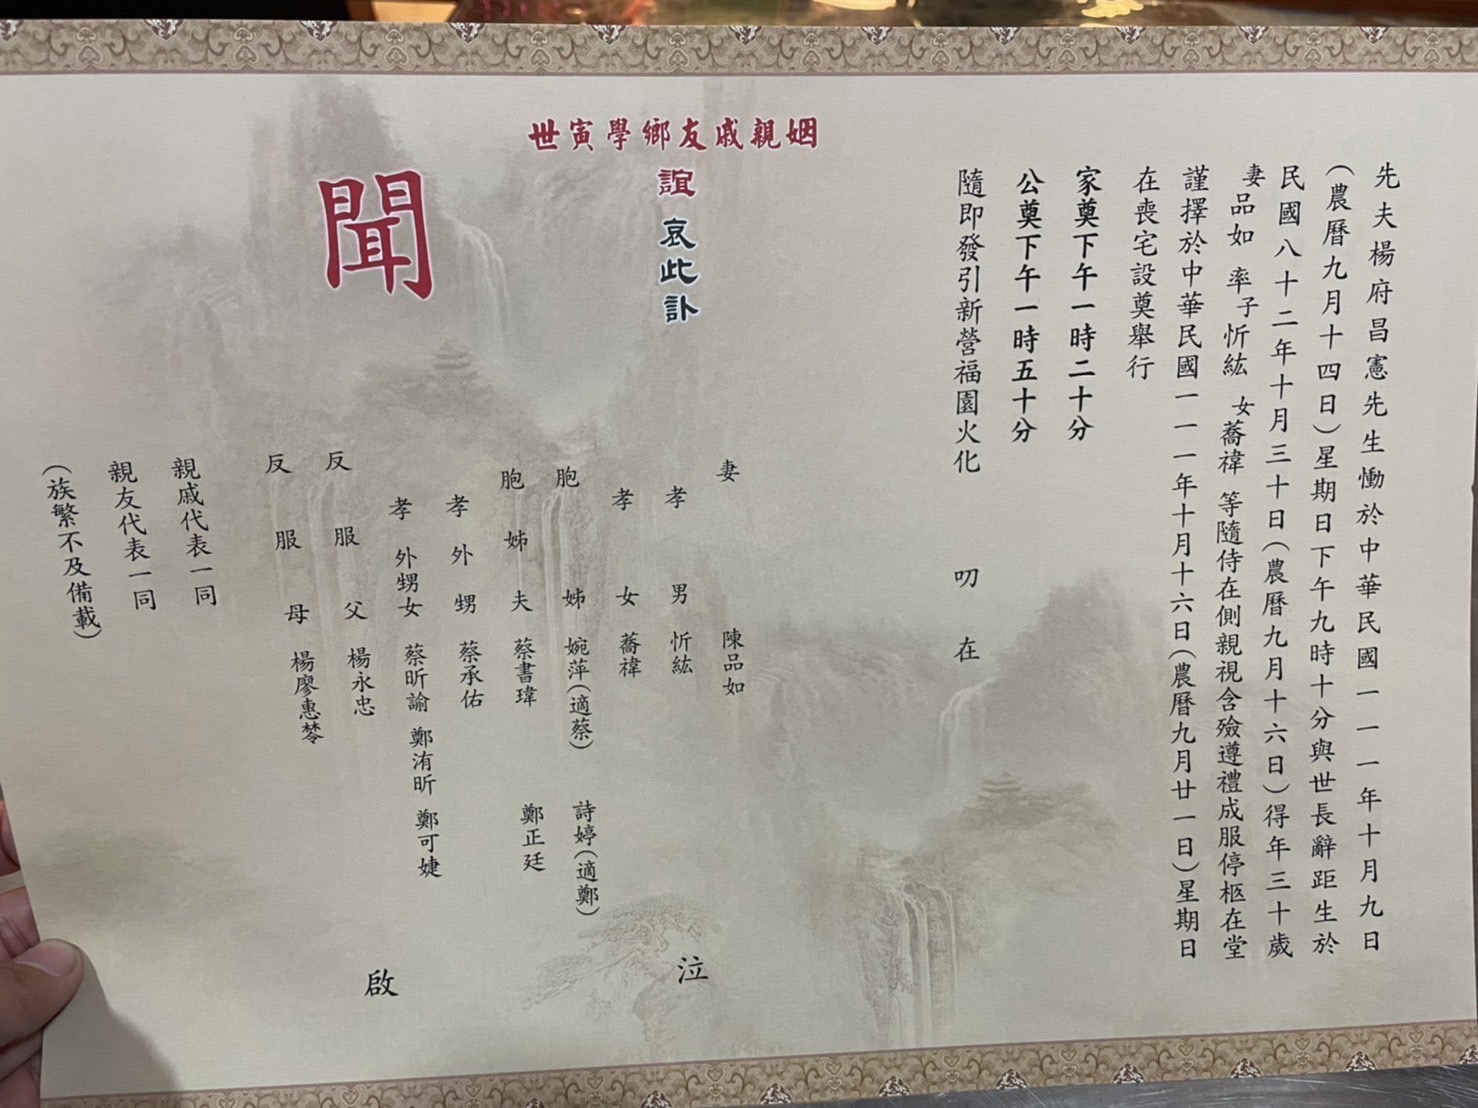 先夫楊府昌憲先生慟於中華民國一一一年十月九日
(農曆九月十四日)星期日下午九時十分與世長辭距生於
民國八十二年十月三十日(農曆九月十六日)得年三十歲
妻品如 率子忻紘 女蕎禕 等隨侍在側親視含殮遵禮成服停柩在堂
謹擇於中華民國一一一年十月十六日(農曆九月廿一日)星期日
在喪宅設奠舉行
家奠下午一時二十分
公奠下午一時五十分
隨即發引新營福園火化
叨在
姻親戚友鄉學寅世
誼 哀此訃
聞
妻 陳品如
孝男 忻紘
孝女 蕎禕
胞姊 婉萍(適蔡) 詩婷(適鄭)
胞姊夫 蔡書瑋 鄭正廷
孝外甥 蔡承佑
孝外甥女 蔡昕諭 鄭洧昕 鄭可婕
反服父 楊永忠
反服母 楊廖惠棽
泣
啟
親戚代表一同
親友代表一同
(族繁不及備載)